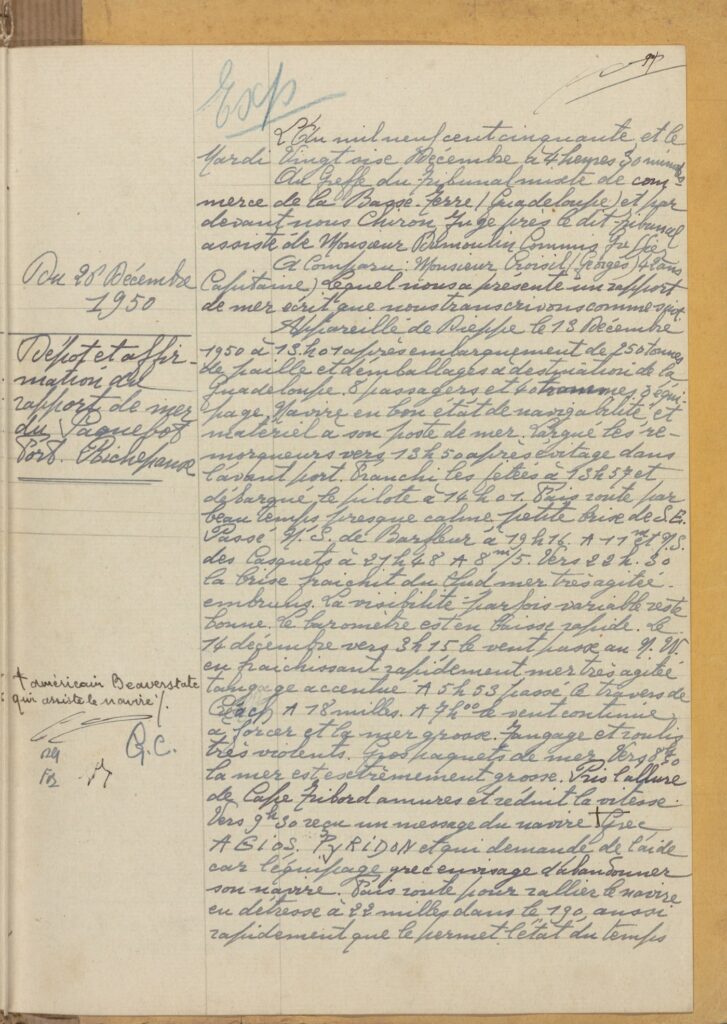 Exp
L'An mil neuf cent cinquante et le
Mardi Vingt sisc Décembre à 4 heures 30 minutes
Au Greffe du Tribunal mixte de com
merce de la Basse-Terre (Guadeloupe) et par
devant nous Chiron Juge près le dit Tribunal
assisté de Monsieur Commis
A Comparu : Monsieur Croisil (Georges) 42 ans
Capitaine) lequel nous a présenté un rapport
de mer écrit que nous transcrivons comme suit.
Appareillé de Dieppe le 13 Décembre
1950 à 13h01 après embarquement de 250 tonnes
de paille et d'emballages à destination de la
Guadeloupe. 8 passagers et hommes d'équi
page. Navire en bon état de navigabilité et
matériel à son poste de mer. Largué les re-
morqueurs vers 13h50 après évitage dans
l'avant port. Franchi les jetées à 13h57 et
débarqué le pilote à 14h01. Fais route par
beau temps presque calme, petite brise de S.E.
Passé N.S. de Barfleur à 19h14. A 11m et N.S.
des Casquets à 21h48 A 8m/5. Vers 22h.30
la brise fraichit du Sud mer très agitée -
embruns. La visibilité parfois variable reste
bonne. Le baromètre est en baisse rapide. Le
14 décembre vers 3h15 le vent passe au N.W.
en fraichissant rapidement mer très agitée
tangage accentué A 5h53 passé le travers de
Créach A 18 milles. A 7h00 le vent continue
à forcer et la mer grosse. Tangage et roulis
très violents. Gros paquets de mer. Vers 8h30
la mer est extrêmement grosse. Pris l'allure
de Cape Tribord amures et réduit la vitesse.
Vers 9h30 reçu un message du navire + Grec
AGIOS. PYRIDON et qui demande de l'aide
car l'équipage grec envisage d'abandonner
son navire. Fais route pour rallier le navire
en détresse à 22 milles dans le 190, aussi
rapidement que le permet l'état du temps
Du 26 Décembre
1950
Dépôt et affir-
mation du
rapport de mer
du Paquebot
Port. Richepanse
+ américain Beaverstate
qui assiste le navire /.
G.C.